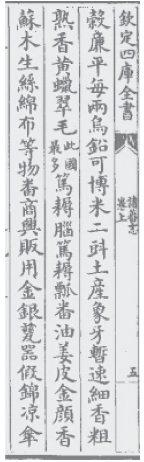 欽定四庫全書
諸蕃志
卷上
五
穀廉平每兩烏鉛可博米二㪷土産象牙暫速細香粗
熟香黄蠟翠毛此國最多篤耨腦篤耨瓢畨油姜皮金顔香
蘇木生絲綿布等物畨商興販用金銀甆器假錦凉傘